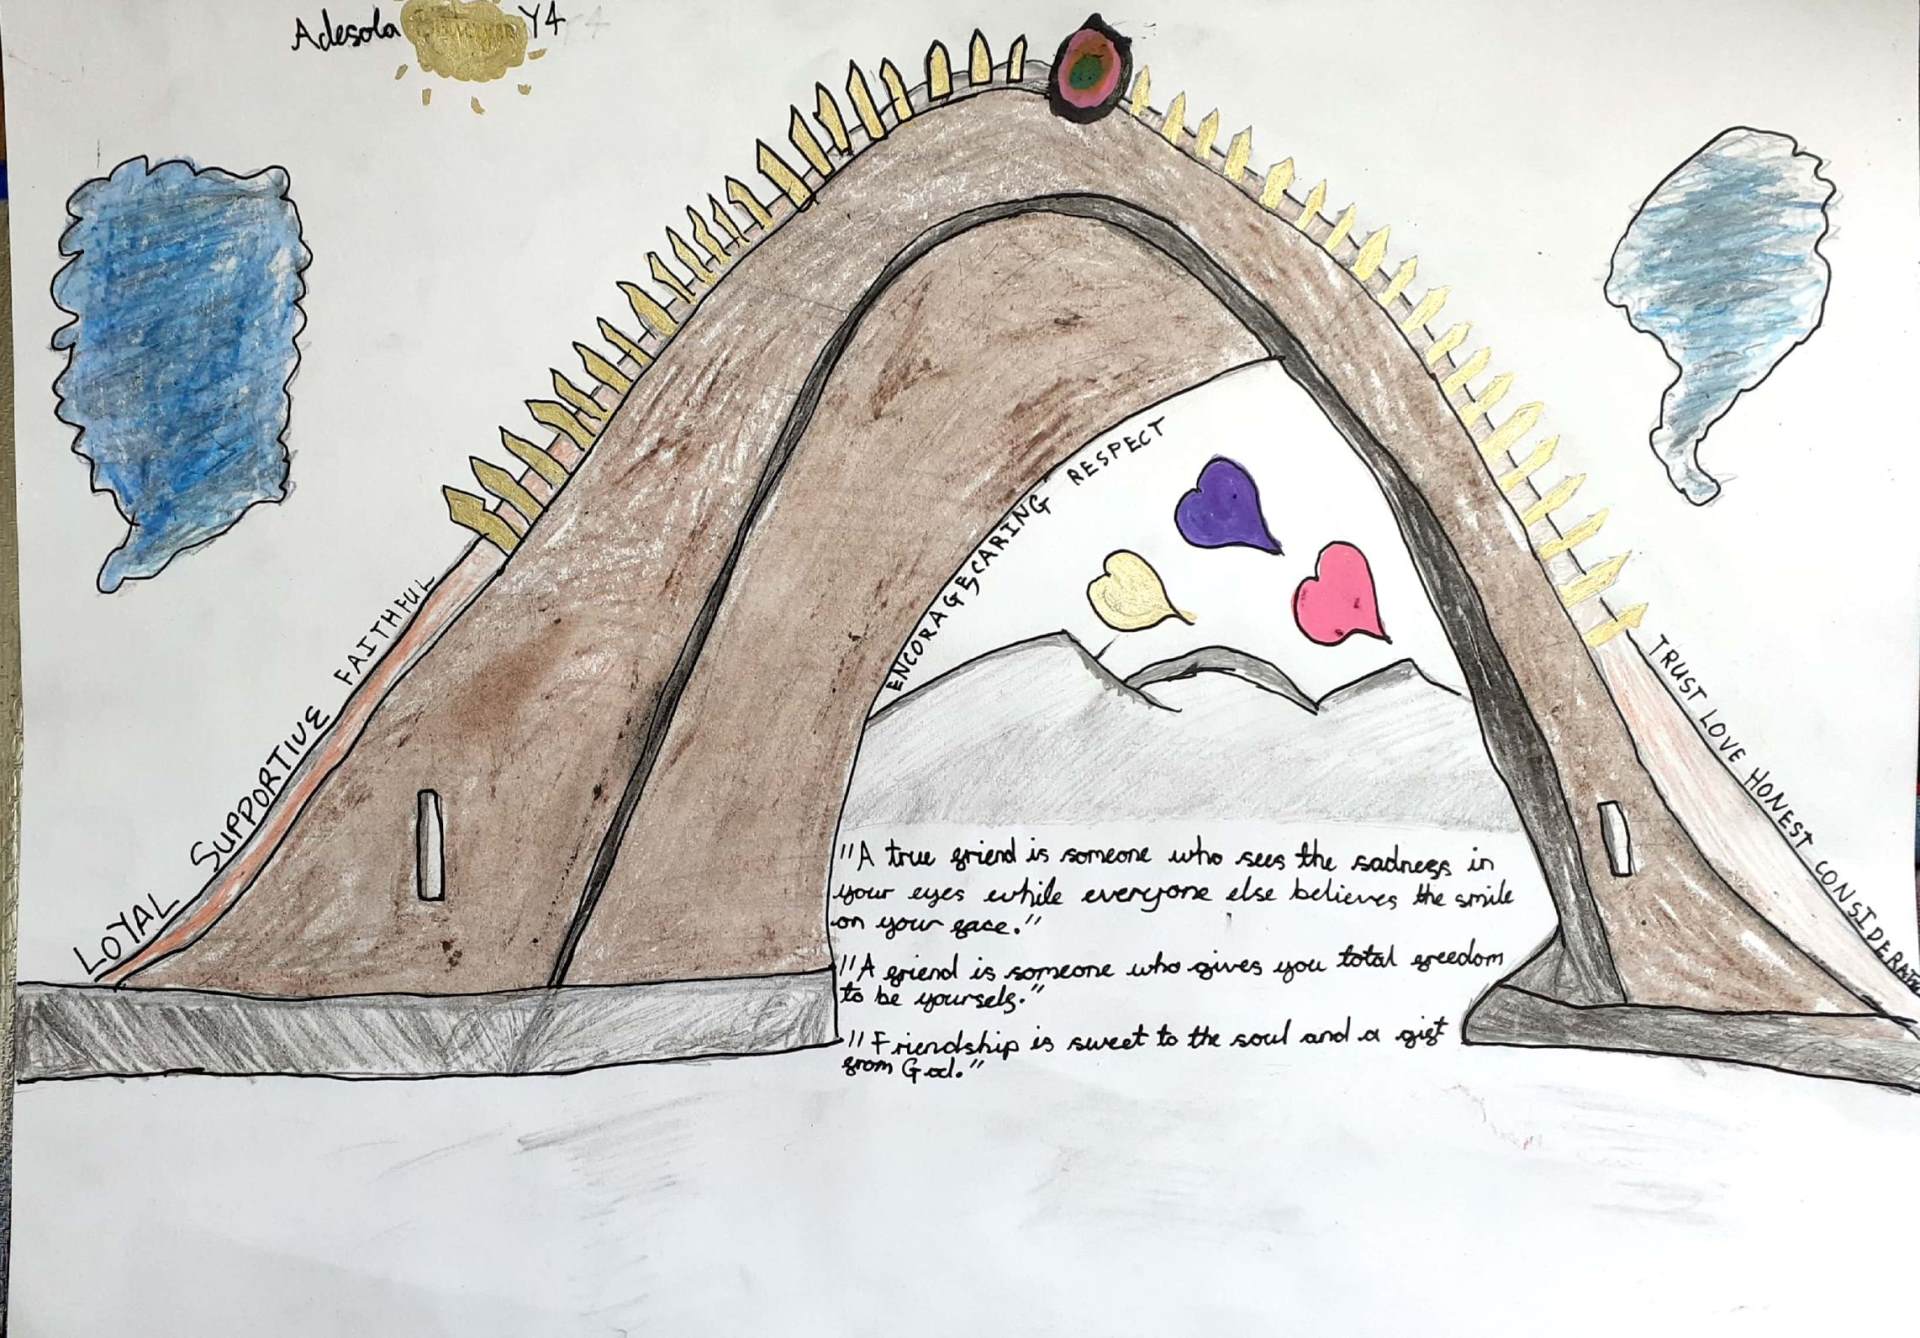 Adesola Y4
LOYAL SUPPORTIVE FAITHFUL
ENCORAGES CARING RESPECT
TRUST LOVE HONEST CONSIDERATE
"A true friend is someone who sees the sadness in
your eyes while everyone else believes the smile
on your face."
"A friend is someone who gives you total freedom
to be yourself."
"Friendship is sweet to the soul and a gift
from God."